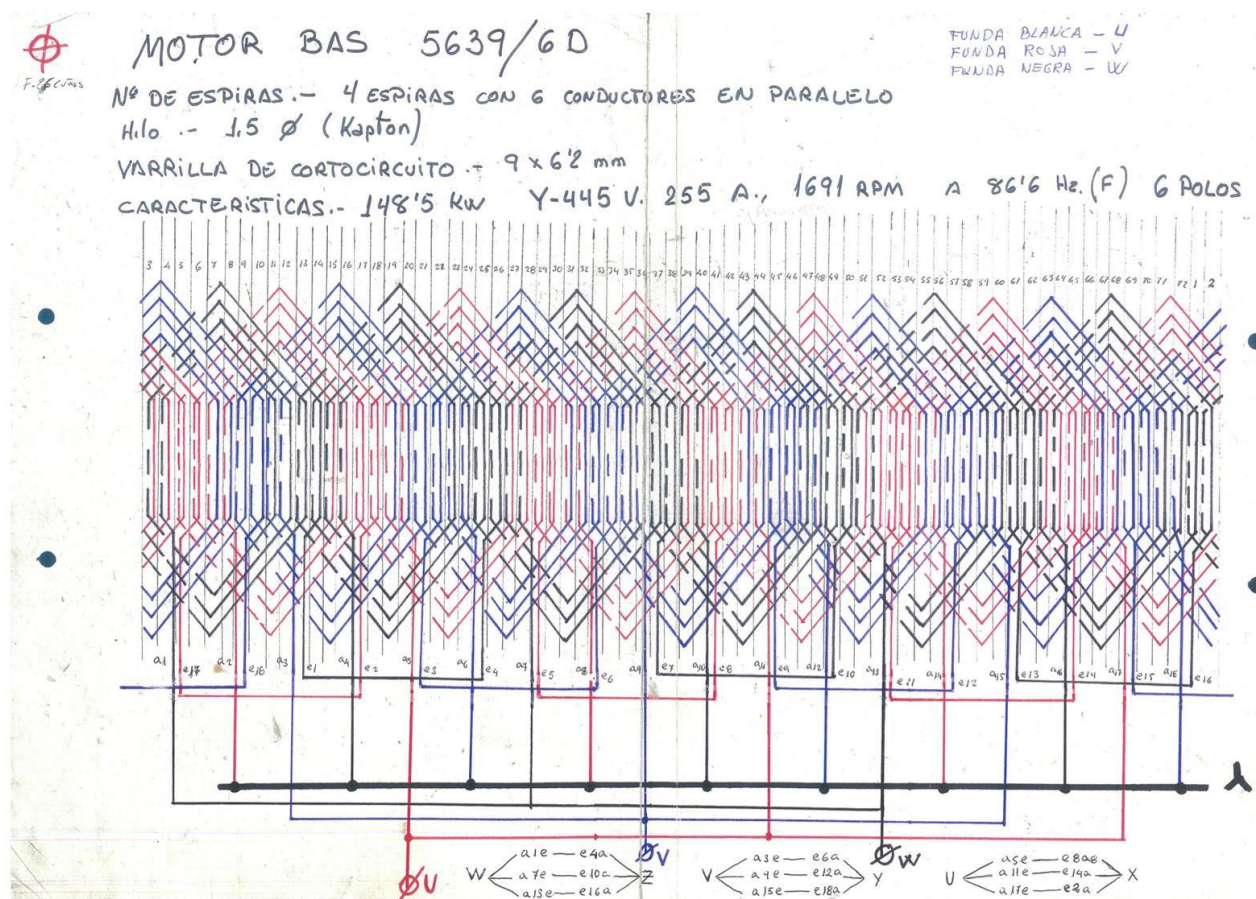 MOTOR BAS 5639/6D
FUNDA BLANCA - U
FUNDA ROSA - V
FUNDA NEGRA - W
Nº DE ESPIRAS.- 4 ESPIRAS CON 6 CONDUCTORES EN PARALELO
Hilo .- 1.5 Ø (Kapton)
VARRILLA DE CORTOCIRCUITO.- 9 x 6'2 mm
CARACTERÍSTICAS.- 148'5 KW Y-445 V. 255 A., 1691 RPM A 86'6 Hz. (F) 6 POLOS
3 4 5 6 7 8 9 10 11 12 13 14 15 16 17 18 19 20 21 22 23 24 25 26 27 28 29 30 31 32 33 34 35 36 37 38 39 40 41 42 43 44 45 46 47 48 49 50 51 52 53 54 55 56 57 58 59 60 61 62 63 64 65 66 67 68 69 70 71 72 1 2
a1 e17 a2 e18 a3 e1 a4 e2 a5 e3 a6 e4 a7 e5 a8 e6 a9 e7 a10 e8 a11 e9 a12 e10 a13 e11 a14 e12 a15 e13 a16 e14 a17 e15 e16
U V W
W a1e — e4a Z
a7e — e10a
a13e — e16a
V a3e — e6a Y
e12a
a15e — e18a
U a5e — X
a11e — e14a
a17e — e2a